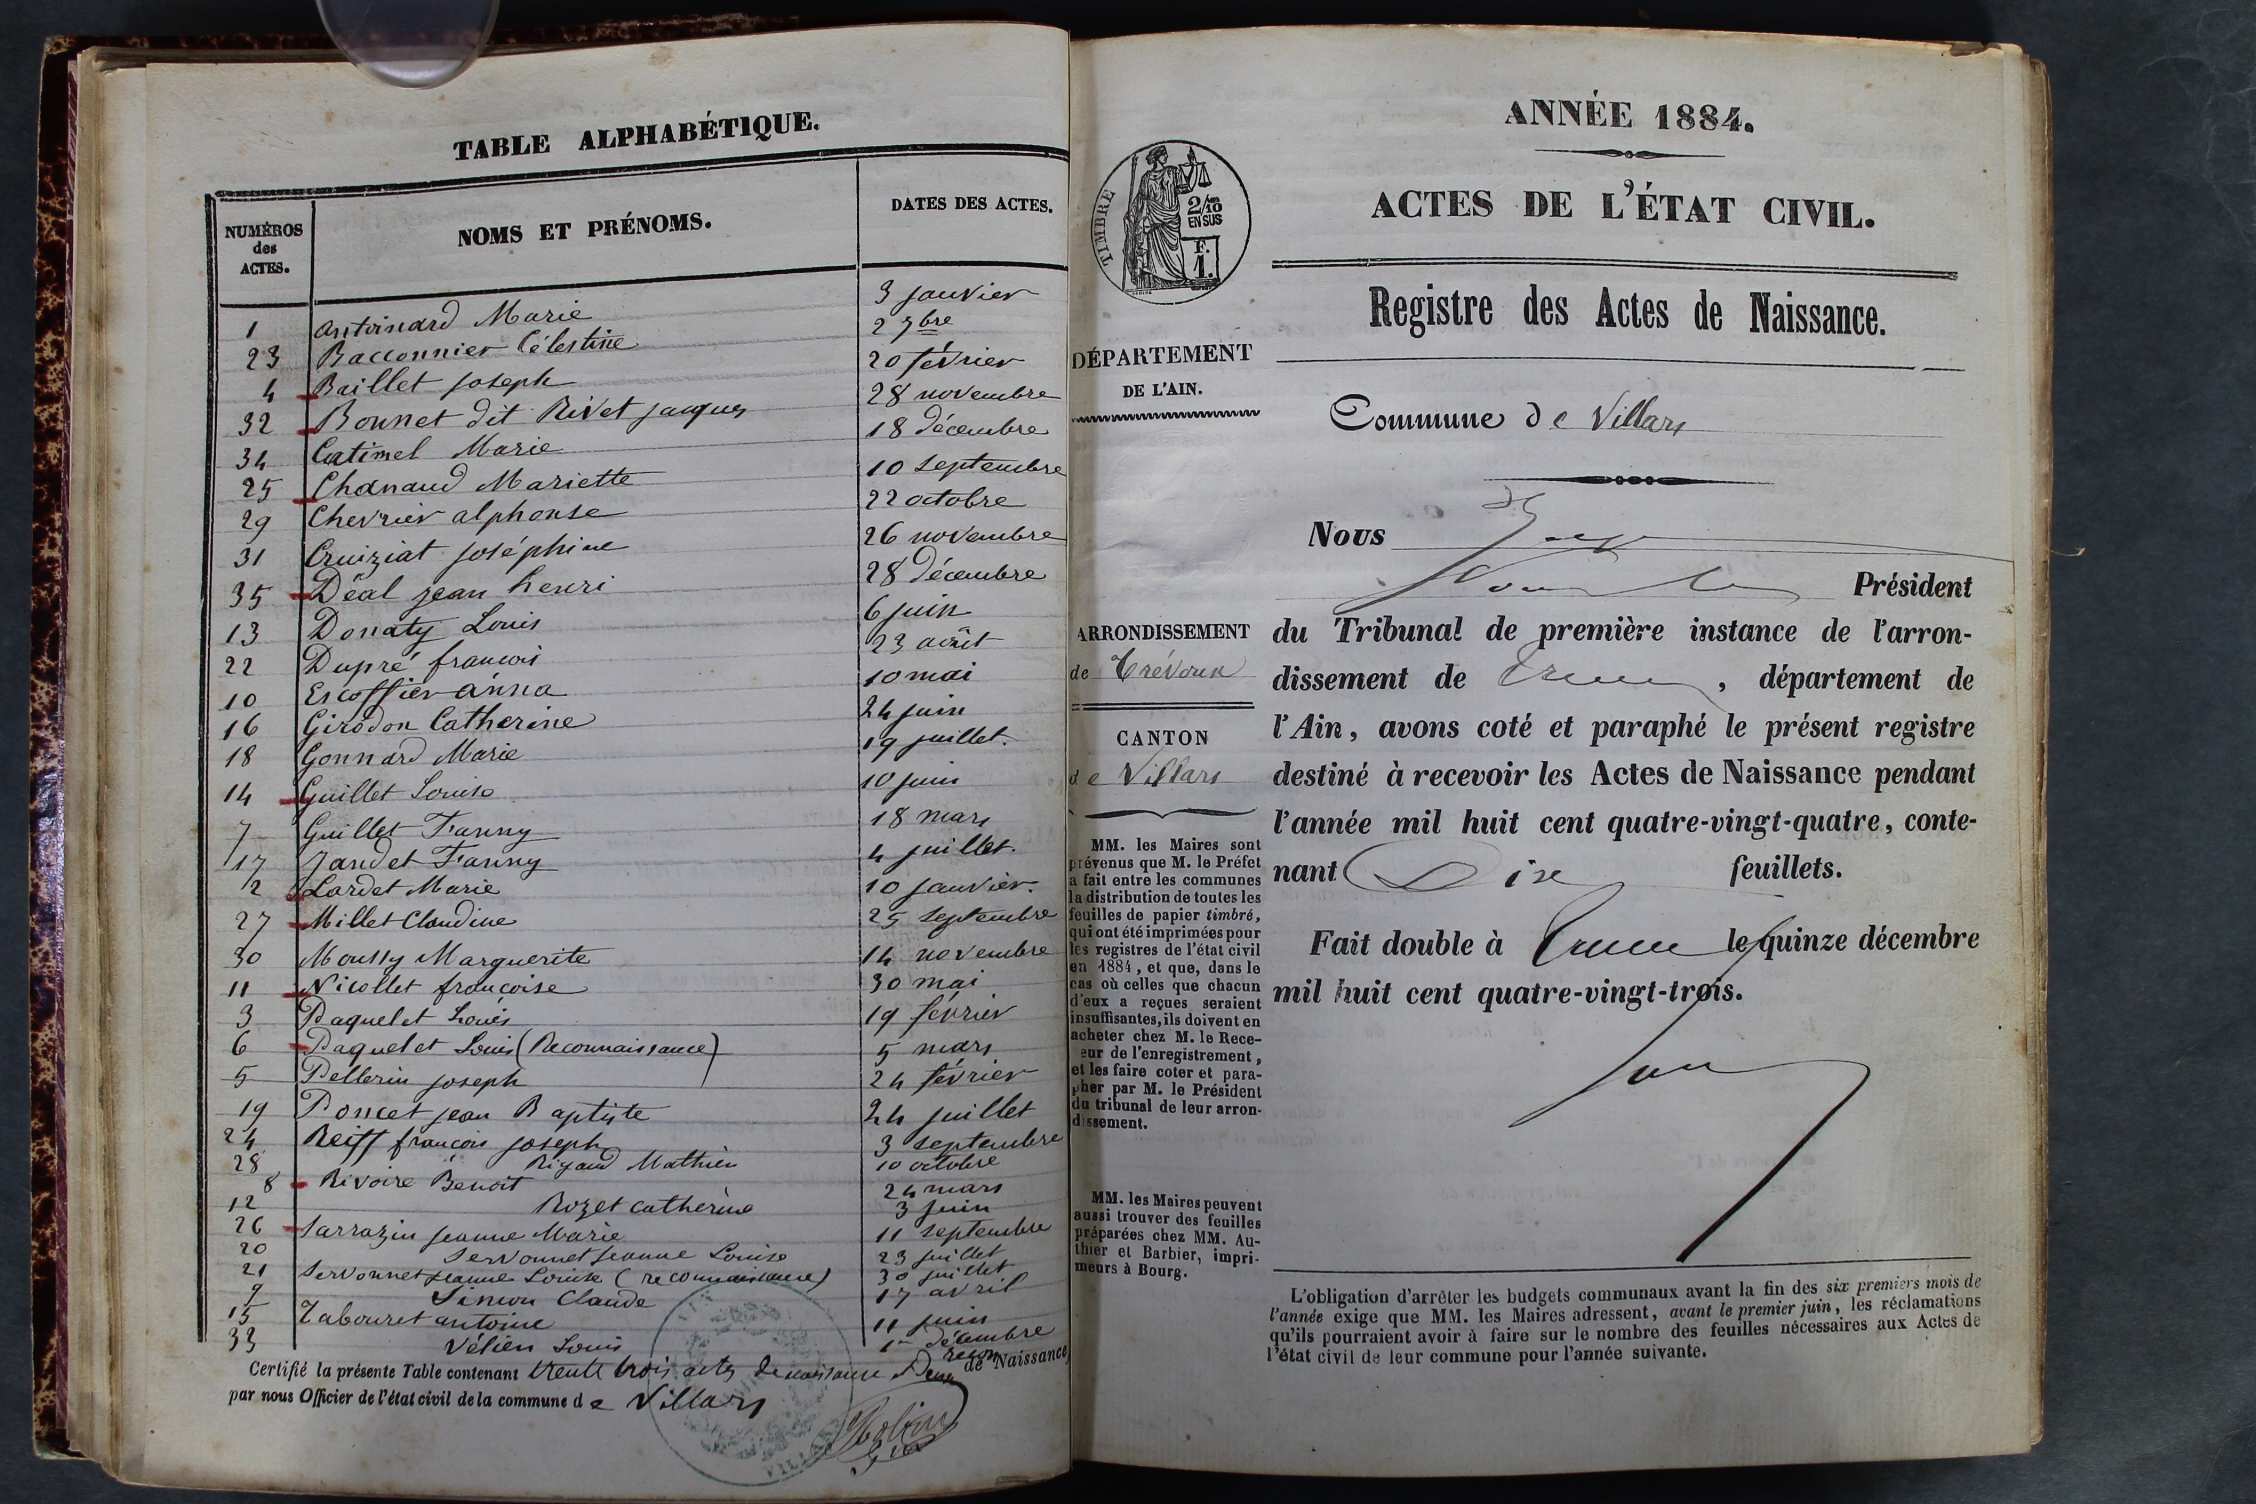 TABLE ALPHABÉTIQUE.
NUMÉROS des ACTES. NOMS ET PRÉNOMS. DATES DES ACTES.
1 Antoinard Marie 3 janvier
23 Bacconnier Célestine 2 7bre
4 Baillet Joseph 20 février
32 Bonnet dit Rivet jacques 28 novembre
34 Catimel Marie 18 décembre
25 Chanaud Mariette 10 septembre
29 Chevrier alphonse 22 octobre
31 Cruiziat Joséphine 26 novembre
35 Déal jean henri 28 décembre
13 Donaty Louis 6 juin
22 Dupré françois 23 août
10 Escoffier anna 10 mai
16 Girodon Catherine 24 juin
18 Gonnard Marie 19 juillet.
14 Guillet Louise 10 juin
7 Guillet Fanny 18 mars
17 Jandet Fanny 4 juillet.
2 Lardet Marie 10 janvier.
27 Millet Claudine 25 septembre
30 Moussy Marguerite 14 novembre
11 Nicollet françoise 30 mai
3 Paquelet Louis 19 février
6 Paquelet Louis (Reconnaissance) 5 mars
5 Pellerin joseph 24 février
19 Poncet jean Baptiste 24 juillet
24 Reiff françois joseph 3 septembre
28 Rigaud Mathieu 10 octobre
8 Rivoire Benoit 24 mars
12 Rozet catherine 3 juin
26 Sarrazin jeanne Marie 11 septembre
20 Servonnet jeanne Louise 23 juillet
21 Servonnet jeanne Louise (reconnaissance) 30 juillet
9 Simon Claude 17 avril
15 Tabouret antoine 11 juin
33 Vélien Louis 1er décembre
Certifié la présente Table contenant trente trois actes de naissance Deux recon de Naissance,
par nous Officier de l'état civil de la commune de Villars
VILLARS
ANNÉE 1884.
ACTES DE L'ÉTAT CIVIL.
TIMBRE
2/10 EN SUS
F. 1.
Registre des Actes de Naissance.
DÉPARTEMENT
DE L'AIN.
Commune de Villars
Nous
Président
du Tribunal de première instance de l'arron-
dissement de , département de
l'Ain, avons coté et paraphé le présent registre
destiné à recevoir les Actes de Naissance pendant
l'année mil huit cent quatre-vingt-quatre, conte-
nant Dix feuillets.
Fait double à le quinze décembre
mil huit cent quatre-vingt-trois.
ARRONDISSEMENT
de Trévoux
CANTON
de Villars
MM. les Maires sont
prévenus que M. le Préfet
a fait entre les communes
la distribution de toutes les
feuilles de papier timbré,
qui ont été imprimées pour
les registres de l'état civil
en 1884, et que, dans le
cas où celles que chacun
d'eux a reçues seraient
insuffisantes, ils doivent en
acheter chez M. le Rece-
eur de l'enregistrement,
et les faire coter et para-
pher par M. le Président
du tribunal de leur arron-
dissement.
MM. les Maires peuvent
aussi trouver des feuilles
préparées chez MM. Au-
thier et Barbier, impri-
meurs à Bourg.
L'obligation d'arrêter les budgets communaux avant la fin des six premiers mois de
l'année exige que MM. les Maires adressent, avant le premier juin, les réclamations
qu'ils pourraient avoir à faire sur le nombre des feuilles nécessaires aux Actes de
l'état civil de leur commune pour l'année suivante.